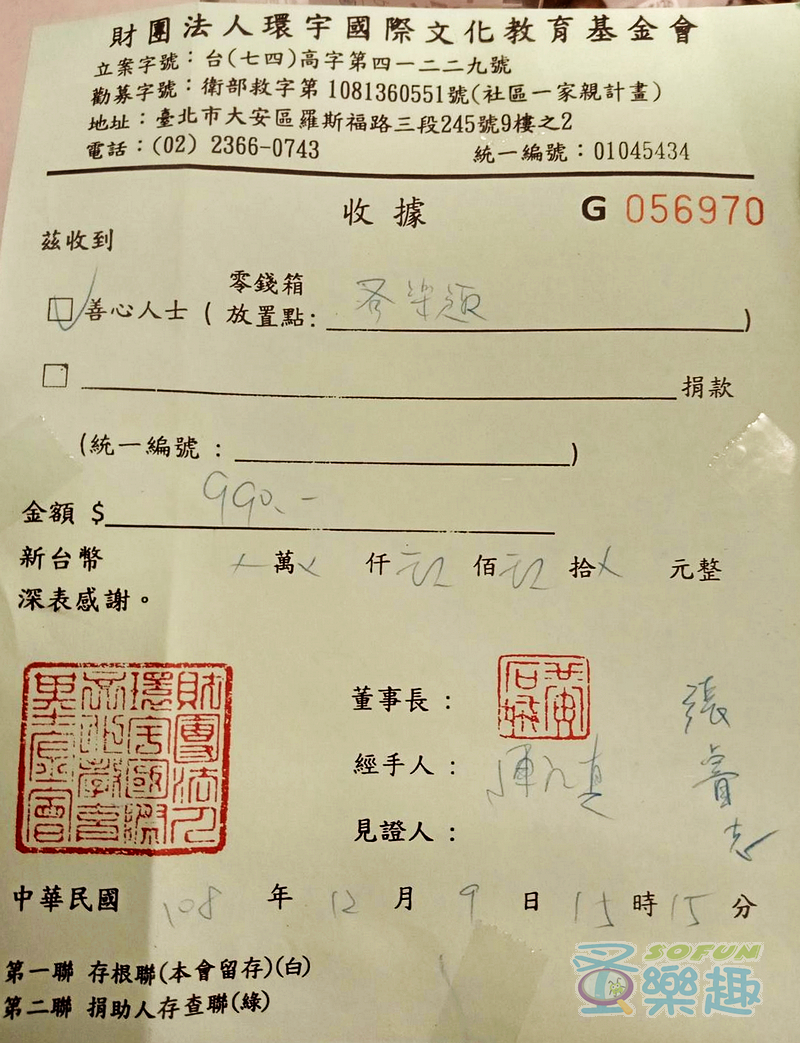 財團法人環宇國際文化教育基金會
立案字號：台(七四)高字第四一二二九號
勸募字號：衛部救字第1081360551號(社區一家親計畫)
地址：臺北市大安區羅斯福路三段245號9樓之2
電話：(02) 2366-0743 統一編號：01045434
收據 G 056970
茲收到
善心人士 ( 零錢箱放置點: 蚤樂趣 )
捐款
(統一編號： )
金額 $ 990.-
新台幣 萬 仟 玖 佰 玖 拾 元整
深表感謝。
財團法人環宇國際文化教育基金會
董事長：
經手人：
張睿志
見證人：
中華民國 108 年 12 月 9 日 15 時 15 分
第一聯 存根聯(本會留存)(白)
第二聯 捐助人存查聯(綠)
SOFUN
蚤樂趣